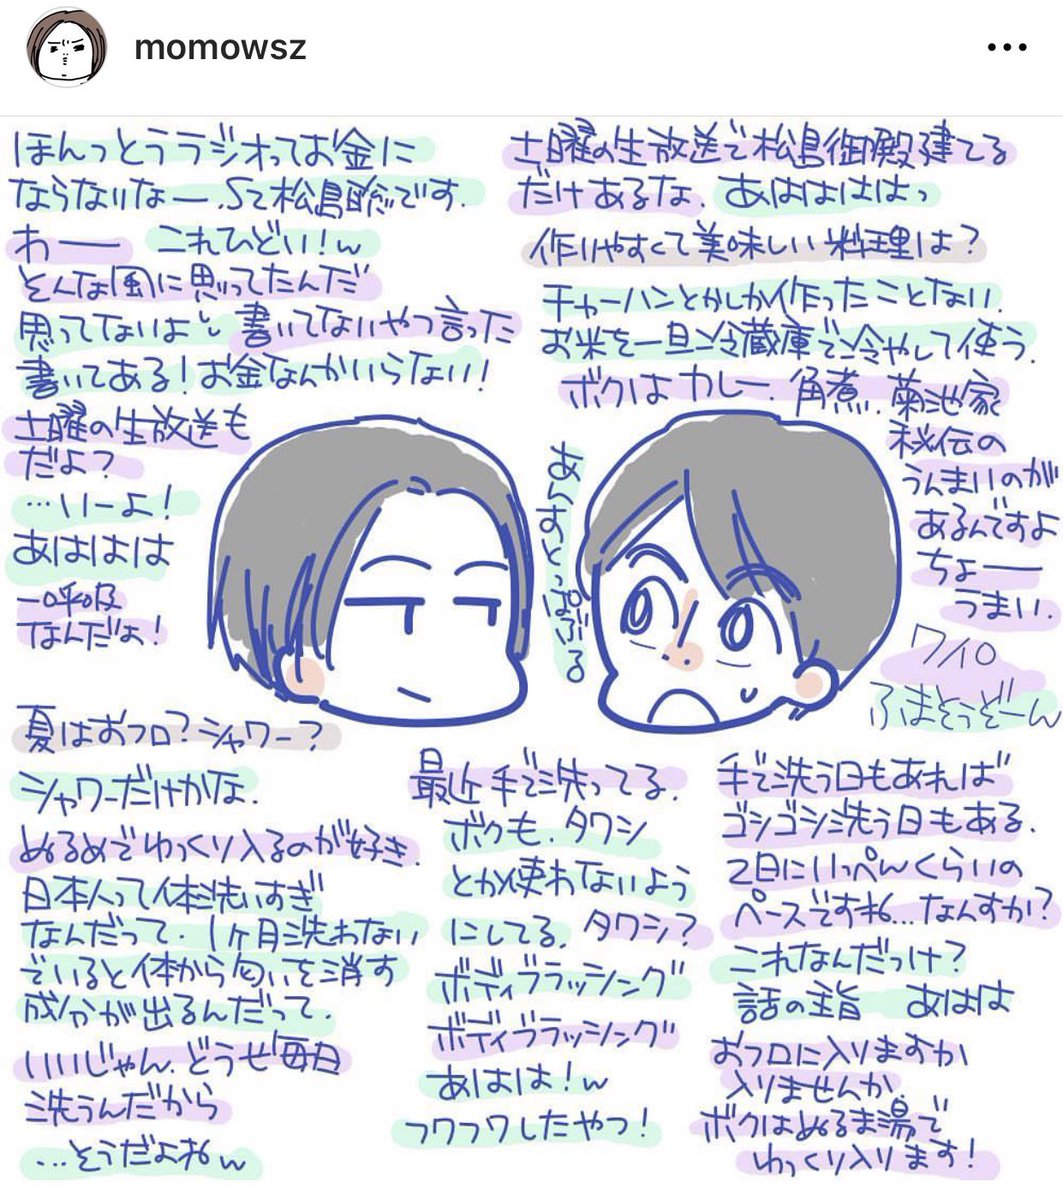 momowsz
ほんっとうラジオってお金に
ならないなー.って松島聡です.
わー これひどい!w
そんな風に思ってたんだ
思ってないよ 書いてないやつ言った
書いてある!お金なんかいらない!
土曜の生放送も
だよ?
…いーよ!
あはははは
一呼吸
なんだよ!
土曜の生放送で松島御殿建てる
だけあるな. あはははは っ
作りやすくて美味しい料理は?
チャーハンとかしか作ったことない.
お米を一旦冷蔵庫で冷やして使う.
ボクはカレー.角煮.菊池家
秘伝の
うんまいのが
あるんですよ
ちょー
うまい.
7/10
ふまそっぞーん
あらすとっぷぶる
夏はおフロ?シャワー?
シャワーだけかな.
ぬるめでゆっくり入るのが好き.
日本人って体洗いすぎ
なんだって.1ヶ月洗わない
でいると体から匂いを消す
成分が出るんだって.
いいじゃん.どうせ毎日
洗うんだから
…そうだよねw
最近手で洗ってる.
ボクも.タワシ
とか使わないよう
にしてる. タワシ?
ボディブラッシング
ボディブラッシング
あはは!w
フワフワしたやつ!
手で洗う日もあれば
ゴシゴシ洗う日もある.
2日にいっぺんくらいの
ペースですね…なんすか?
これなんだっけ?
話の主旨 あはは
おフロに入りますか
入りませんか.
ボクはぬるま湯で
ゆっくり入ります!